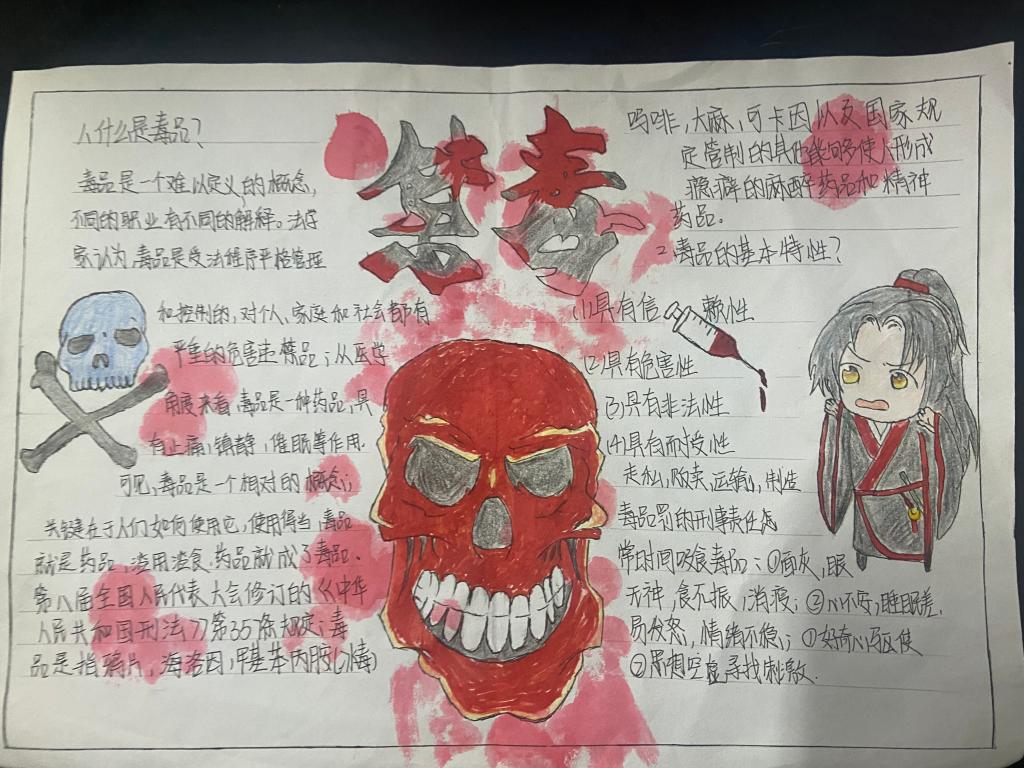 禁毒
1、什么是毒品?
毒品是一个难以定义的概念,
不同的职业有不同的解释。法学
家认为,毒品是受法律程序严格管理
和控制的,对个人、家庭和社会都有
严重的危害违禁品;从医学
角度来看,毒品是一种药品,具
有止痛,镇静,催眠等作用.
可见,毒品是一个相对的概念;
关键在于人们如何使用它,使用得当,毒品
就是药品,滥用滥食,药品就成了毒品.
第八届全国人民代表大会修订的《中华
人民共和国刑法》第35条规定;毒
品是指鸦片,海洛因,甲基苯丙胺(冰毒)
吗啡,大麻,可卡因以及国家规
定管制的其他能够使人形成
瘾癖的麻醉药品和精神
药品。
2、毒品的基本特性?
(1)具有信 赖性
(2)具有危害性
(3)具有非法性
(4)具有耐受性
走私,贩卖,运输,制造
毒品罚的刑事责任
常时间吸食毒品:①面灰,眼
无神,食不振,消瘦;②心不安,睡眠差,
易发怒,情绪不稳;①好奇心驱使
②思想空虚寻找刺激.